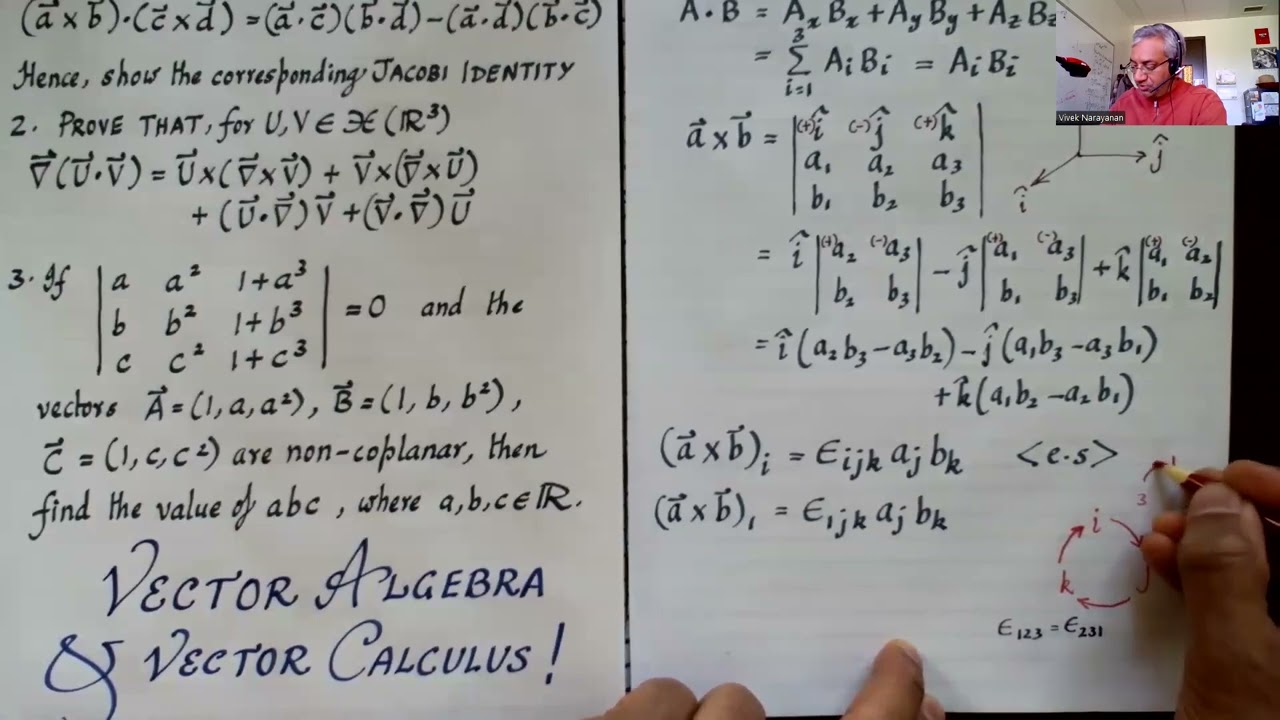 (a⃗ × b⃗)·(c⃗ × d⃗) = (a⃗·c⃗)(b⃗·d⃗) − (a⃗·d⃗)(b⃗·c⃗)
Hence, show the corresponding JACOBI IDENTITY
2. PROVE THAT, for U, V ∈ 𝔛(ℝ³)
∇⃗(U⃗·V⃗) = U⃗×(∇⃗×V⃗) + V⃗×(∇⃗×U⃗)
+ (U⃗·∇⃗)V⃗ + (V⃗·∇⃗)U⃗
3. If | a a² 1+a³ |
| b b² 1+b³ | = 0 and the
| c c² 1+c³ |
vectors A⃗ = (1, a, a²), B⃗ = (1, b, b²),
C⃗ = (1, c, c²) are non-coplanar, then
find the value of abc, where a, b, c ∈ ℝ.
VECTOR ALGEBRA
& VECTOR CALCULUS!
A·B = AₓBₓ + A_y B_y + A_z B_z
= Σ_{i=1}^{3} A_i B_i = A_i B_i
a⃗ × b⃗ = | (+)î (−)ĵ (+)k̂ |
| a₁ a₂ a₃ |
| b₁ b₂ b₃ |
ĵ
î
= î | (+)a₂ (−)a₃ | − ĵ | (+)a₁ (−)a₃ | + k̂ | (+)a₁ (−)a₂ |
| b₂ b₃ | | b₁ b₃ | | b₁ b₂ |
= î(a₂b₃ − a₃b₂) − ĵ(a₁b₃ − a₃b₁)
+ k̂(a₁b₂ − a₂b₁)
(a⃗ × b⃗)_i = ϵ_{ijk} a_j b_k <e.s>
(a⃗ × b⃗)₁ = ϵ_{1jk} a_j b_k
1
3
i
k j
ϵ₁₂₃ = ϵ₂₃₁
Vivek Narayanan